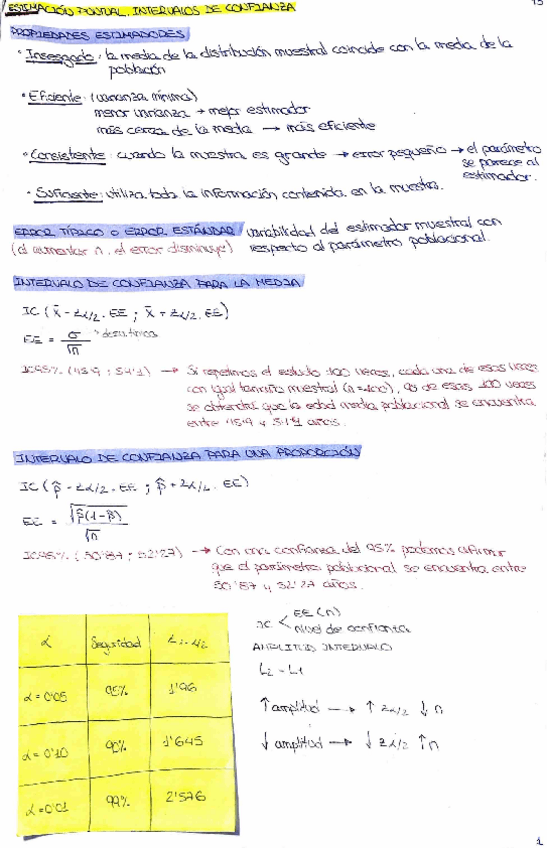 ESTIMACIÓN PUNTUAL. INTERVALOS DE CONFIANZA
PROPIEDADES ESTIMADORES
• Insesgado: la media de la distribución muestral coincide con la media de la
población
• Eficiente: (varianza mínima)
menor varianza → mejor estimador
más cerca de la media → más eficiente
• Consistente: cuando la muestra es grande → error pequeño → el parámetro
se parece al
estimador.
• Suficiente: utiliza toda la información contenida en la muestra.
ERROR TÍPICO O ERROR ESTÁNDAR variabilidad del estimador muestral con
(al aumentar n, el error disminuye) respecto al parámetro poblacional.
INTERVALO DE CONFIANZA PARA LA MEDIA
IC (x̄ - Zα/2 . EE ; x̄ + Zα/2 . EE)
EE = σ/√n → desv. típica
IC95% (45'9 ; 54'1) → Si repetimos el estudio 100 veces, cada una de esas veces
con igual tamaño muestral (n=100), 95 de esas 100 veces
se obtendrá que la edad media poblacional se encuentra
entre 45'9 y 54'1 años.
INTERVALO DE CONFIANZA PARA UNA PROPORCIÓN
IC (p̂ - Zα/2 . EE ; p̂ + Zα/2 . EE)
EE = √p̂(1-p̂)/√n
IC95% (50'87 ; 52'27) → Con una confianza del 95% podemos afirmar
que el parámetro poblacional se encuentra entre
50'87 y 52'27 años.
α Seguridad Z1-α/2
α = 0'05 95% 1'96
α = 0'10 90% 1'645
α = 0'01 99% 2'576
IC < EE (n)
nivel de confianza
AMPLITUD INTERVALO
L2 - L1
↑ amplitud → ↑ Zα/2 ↓ n
↓ amplitud → ↓ Zα/2 ↑ n
1